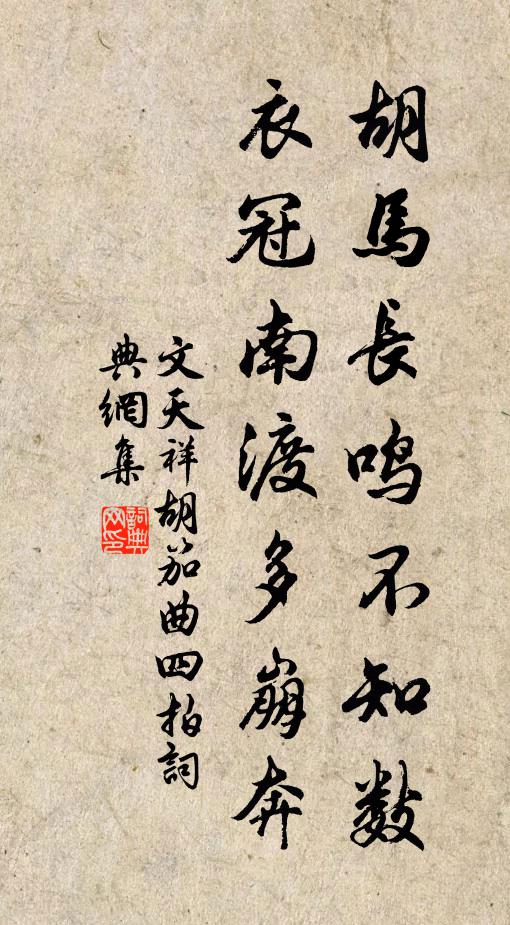 胡馬長鳴不知數
衣冠南渡多崩奔
文天祥胡笳曲四拍詞
典網集
詞典
网印